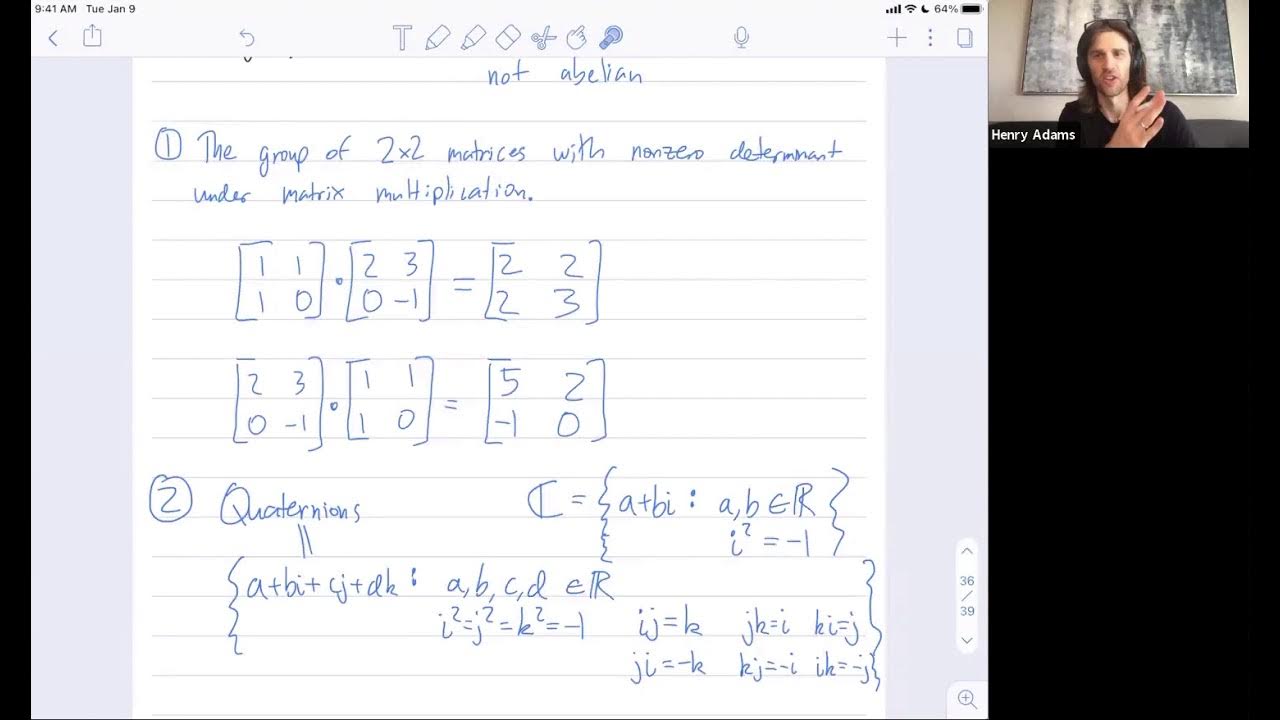 9:41 AM Tue Jan 9
64%
not abelian
① The group of 2×2 matrices with nonzero determinant
under matrix multiplication.
[1 1; 1 0] · [2 3; 0 -1] = [2 2; 2 3]
[2 3; 0 -1] · [1 1; 1 0] = [5 2; -1 0]
② Quaternions
ℂ = {a+bi : a,b ∈ ℝ
i² = -1}
{a+bi+cj+dk : a,b,c,d ∈ ℝ
i²=j²=k²=-1 ij=k jk=i ki=j
ji=-k kj=-i ik=-j}
36
/
39
Henry Adams